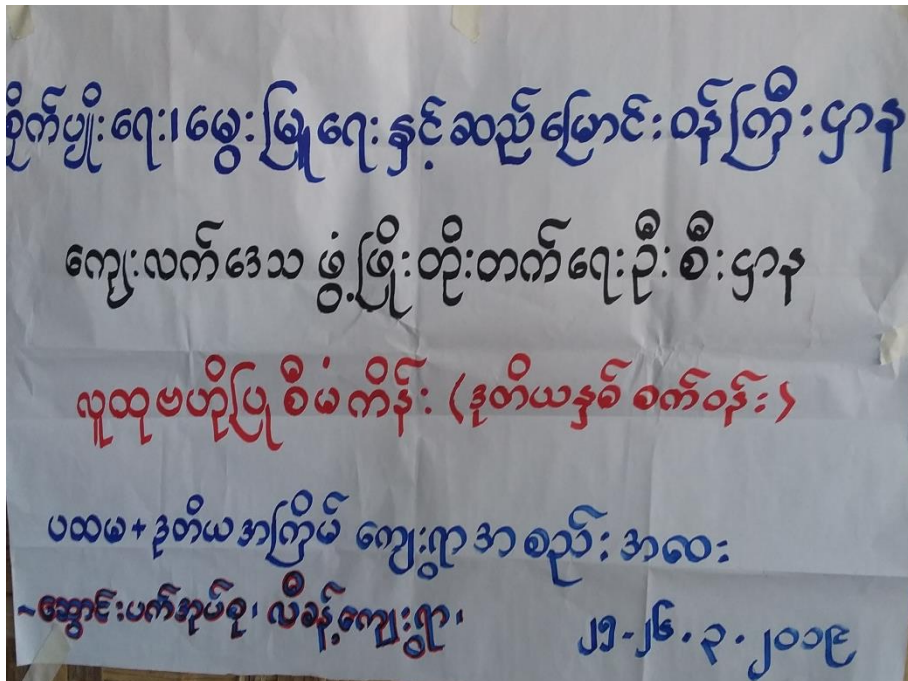 စိုက်ပျိုးရေး၊မွေးမြူရေးနှင့်ဆည်မြောင်းဝန်ကြီးဌာန
ကျေးလက်ဒေသ ဖွံ့ဖြိုးတိုးတက်ရေးဦးစီးဌာန
လူထုဗဟိုပြုစီမံကိန်း (ဒုတိယနှစ် စက်ဝန်း)
ပထမ+ဒုတိယအကြိမ် ကျေးရွာအစည်းအဝေး
~ဆွောင်းပက်အုပ်စု၊ လီခန့်ကျေးရွာ၊
၂၅-၂၆.၃.၂၀၁၉